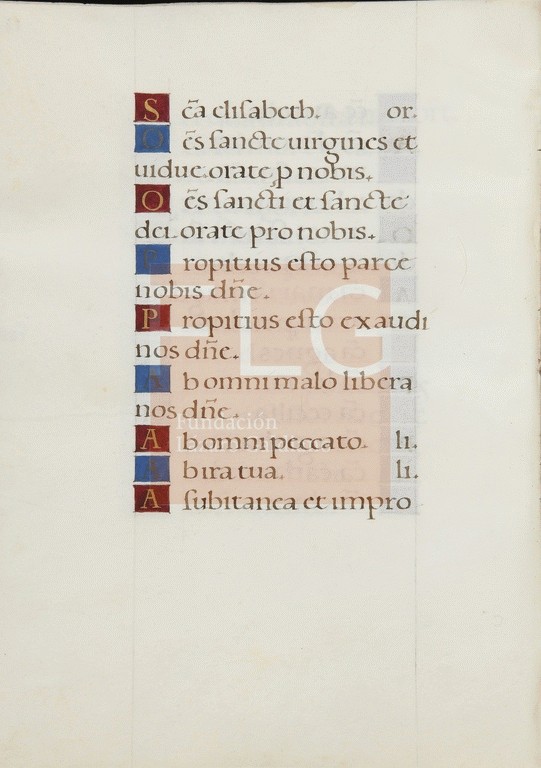 Sc̄a elisabeth. or.
Oēs sancte uirgines et
uidue. orate p nobis.
Oēs sancti et sancte
dei. orate pro nobis.
Propitius esto parce
nobis dn̄e.
Propitius esto exaudi
nos dn̄e.
Ab omni malo libera
nos dn̄e.
Ab omni peccato. li.
Ab ira tua. li.
A subitanea et impro
FLG
Fundación